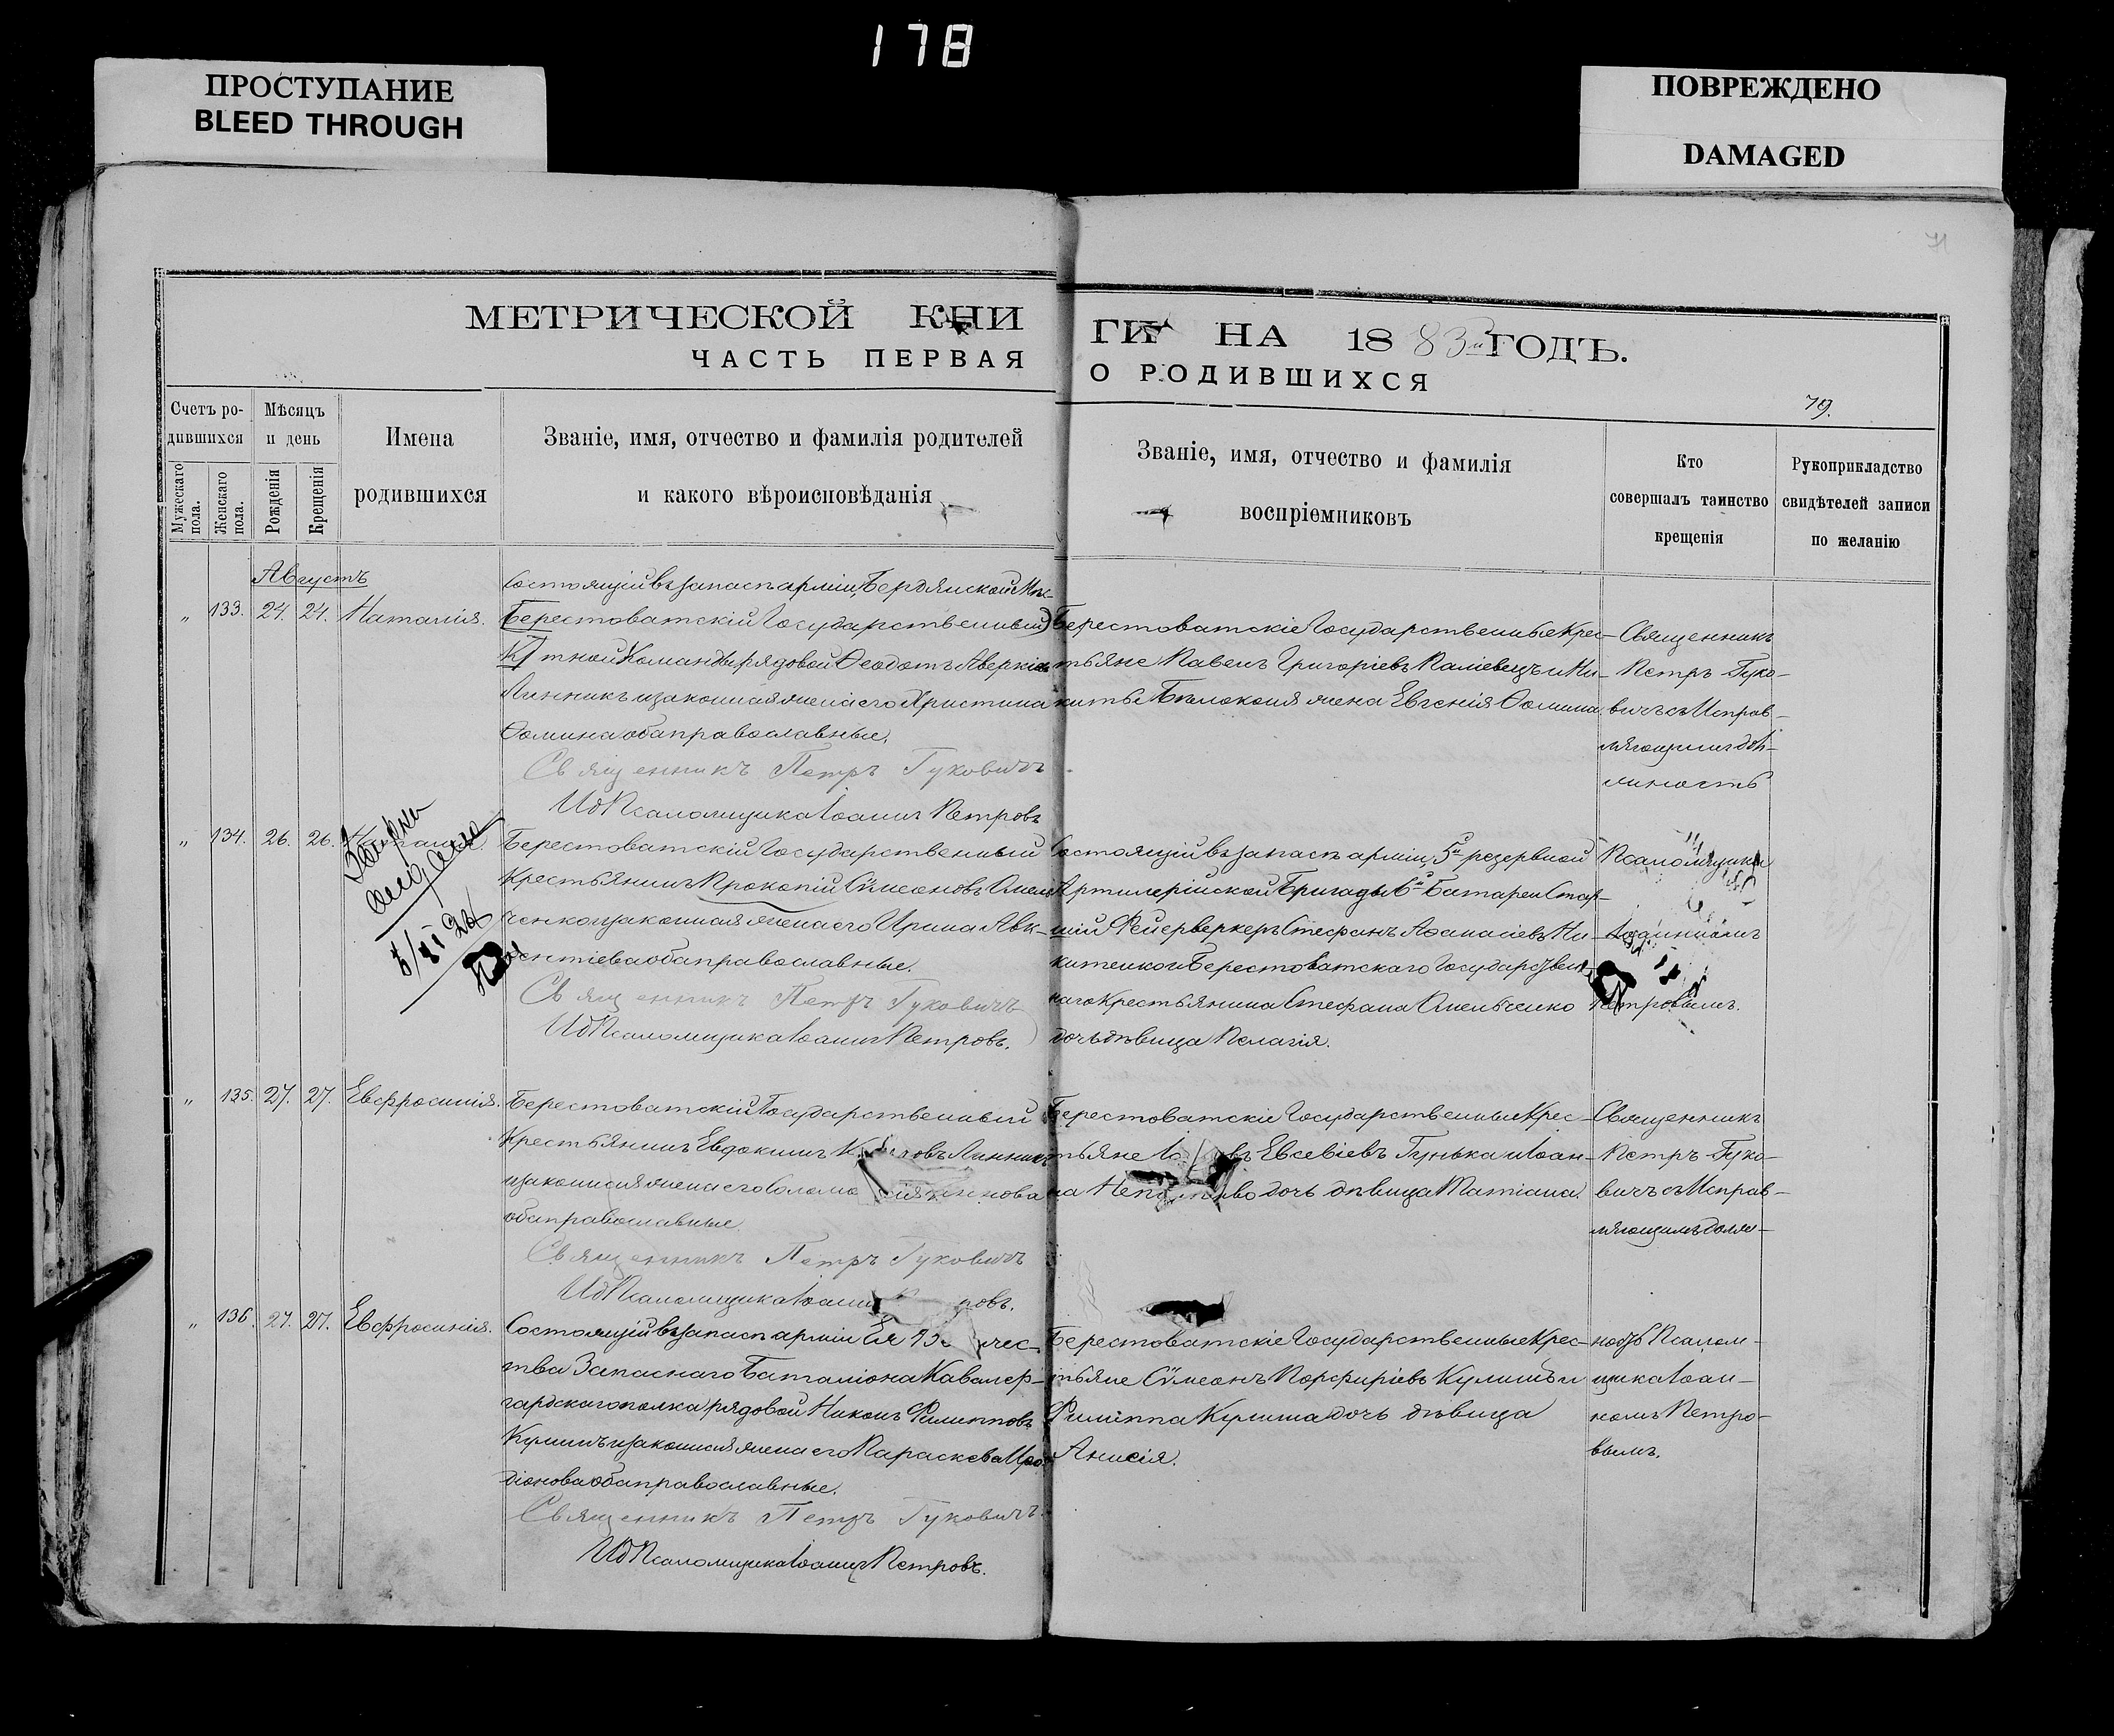 178
ПРОСТУПАНИЕ
BLEED THROUGH
ПОВРЕЖДЕНО
DAMAGED
71
МЕТРИЧЕСКОЙ КНИ
ЧАСТЬ ПЕРВАЯ
ГИ НА 1883й ГОДЪ.
О РОДИВШИХСЯ
79.
Счетъ ро-
дившихся
Мужескаго пола.
Женскаго пола.
Мѣсяцъ
и день
Рожденія
Крещенія
Имена
родившихся
Званіе, имя, отчество и фамилія родителей
и какого вѣроисповѣданія
Званіе, имя, отчество и фамилія
воспріемниковъ
Кто
совершалъ таинство
крещенія
Рукоприкладство
свидѣтелей записи
по желанію
Августъ
„ 133. 24. 24. Наталія.
Состоящій въ запасѣ арміи, Бердянской Мѣс-
Берестоватскій Государственный
тной Команды рядовой Ѳеодотъ Аверкіевъ
Линникъ и законная жена его Христина
Ѳомина оба православные.
Священникъ Петръ Гуковичъ
Ид Псаломщика Іоаннъ Петровъ
Берестоватскіе Государственные Крес-
тьяне Павелъ Григоріевъ Паліевецъ и Ни-
киты Бѣлоконя жена Евгенія Ѳомина.
Священникъ
Петръ Гуко-
вичъ съ Исправ-
ляющимъ дол-
жность
„ 134. 26. 26. Наталія.
5/XI 24
Берестоватскій Государственный
Крестьянинъ Прокопій Сѵмеоновъ Омель
ченко и законная жена его Ирина Авк-
сентіева оба православные.
Священникъ Петръ Гуковичъ
Ид Псаломщика Іоаннъ Петровъ.
Состоящій въ запасѣ арміи, 5й резервной
Артилерійской Бригады 6й Батареи Стар-
шій Фейерверкеръ Стефанъ Аѳанасіевъ Ни-
китенко и Берестоватскаго Государствен-
наго Крестьянина Стефана Омельченко
дочь дѣвица Пелагія.
Псаломщика
Іоанномъ
Петровымъ.
„ 135. 27. 27. Евфросинія.
Берестоватскій Государственный
Крестьянинъ Евдокимъ Линникъ
и законная жена его
оба православные.
Священникъ Петръ Гуковичъ
Ид Псаломщика Іоаннъ ровъ.
Берестоватскіе Государственные Крес-
тьяне Евсевіевъ Гунька и Іоан-
на дочь дѣвица Татіана.
Священникъ
Петръ Гуко-
вичъ съ Исправ-
ляющимъ долж-
„ 136. 27. 27. Евфросинія.
Состоящій въ запасѣ арміи Ея чес-
тва Запаснаго Баталіона Кавалер-
гардскаго полка рядовой Никонъ Филипповъ
Кулишъ и законная жена его Параскева Иро-
діонова оба православные.
Священникъ Петръ Гуковичъ.
Ид Псаломщика Іоаннъ Петровъ.
Берестоватскіе Государственные Крес-
тьяне Сѵмеонъ Порфиріевъ Кулишъ и
Филиппа Кулиша дочь дѣвица
Анисія.
ность Псалом-
щика Іоан-
номъ Петро-
вымъ.